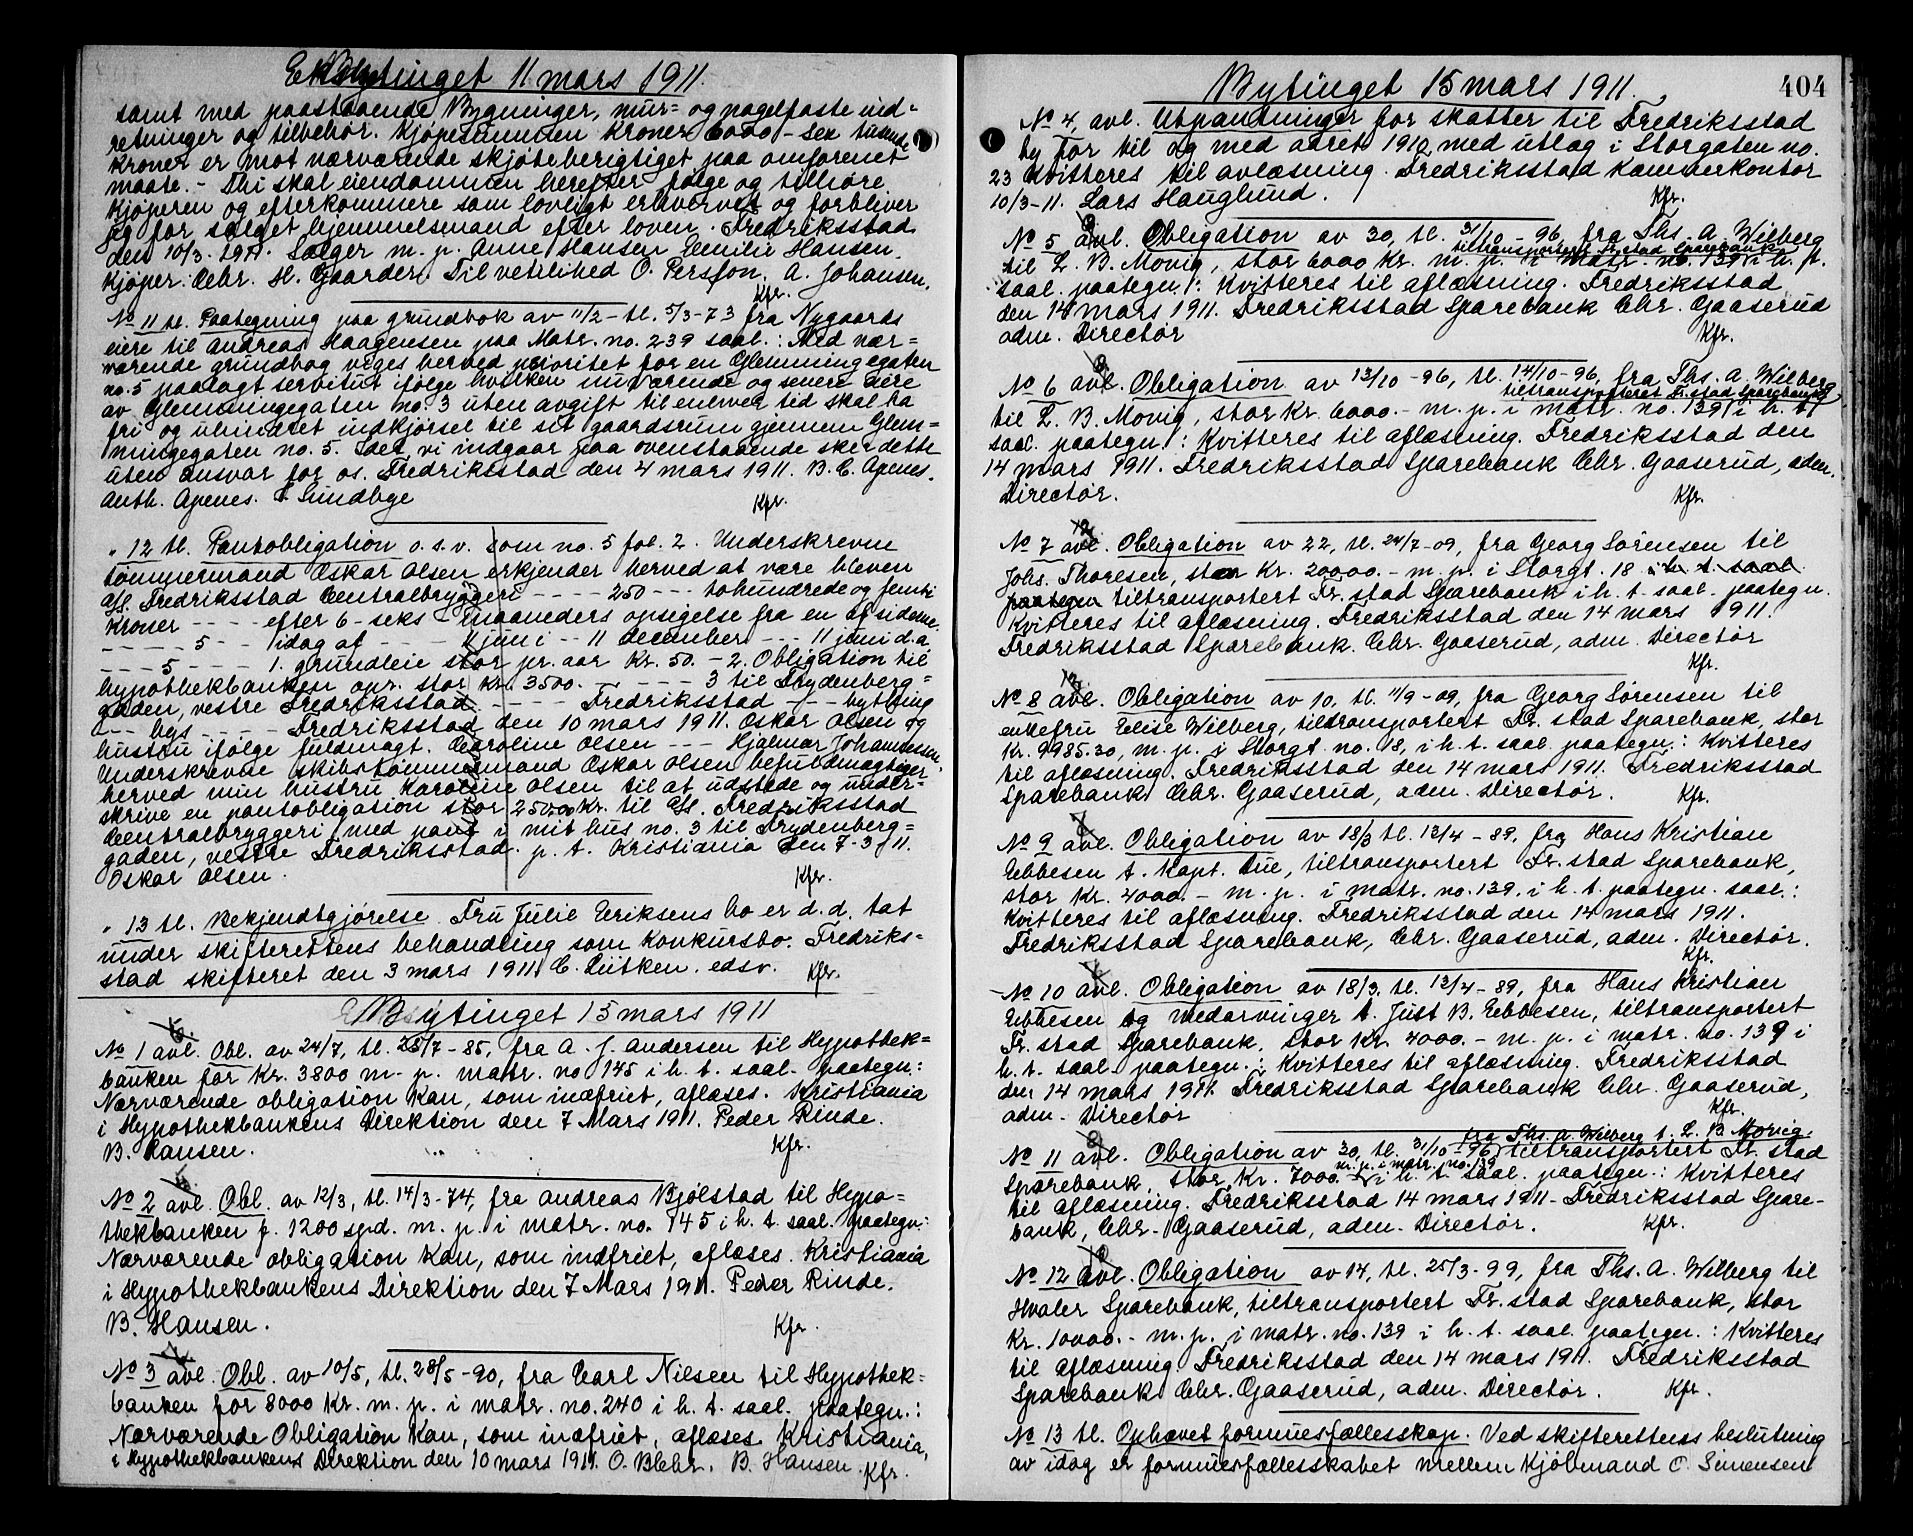 Bytinget 11 mars 1911.
samt med paastaaende Bygninger, mur= og nagelfaste ind=
retninger og tilbehør. Kjøpesummen Kroner 6000 – sex tusinde
Kroner er mot nærværende skjøte berigtiget paa omforenet
maate. – Thi skal eiendommen herefter følge og tilhøre
Kjøperen og efterkommere som lovligt erhvervet og forbliver
jeg for salget hjemmelsmand efter loven. Fredriksstad
den 10/3 1911. Sælger m. p. Anne Hansen Emilie Hansen.
Kjøper: Chr. H. Gaarder. Til vitterlihed O. Persson. A. Johansen.
Kfr.
No 11 tl. Paategning paa grundbok av 11/2 – tl. 5/3–73 fra Nygaards
eiere til Andreas Haagensen paa Matr. no. 239 saal.: Med nær=
værende grundbog viges herved prioritet for en Glemmingegaten
no. 5 paalagt servitut ifølge hvilken nuværende og senere Eiere
av Glemmingegaten no. 3 uten avgift til enhver tid skal ha
fri og uhindret indkjørsel til sit gaardsrum gjennem Glem=
mingegaten no. 5. Idet vi indgaar paa ovenstaaende sker dette
uten ansvar for os. Fredriksstad den 4 mars 1911. B. C. Apenes.
Anth. Apenes. Sundbye
Kfr.
" 12 tl. Pantobligation o. s. v. som no. 5 fol. 2. Underskrevne
tømmermand Oskar Olsen erkjender herved at være bleven
A/S. Fredriksstad Centralbryggeri – – – – 250 – – – tohundrede og femti
Kroner – – – – efter 6 – seks – maaneders opsigelse fra en af siderne.
– – – – – 5 – – idag af – – – 11 juni – – 11 december – – – 11 juni d. a.
– – – 5 – – – – 1. grundleie stor pr. aar Kr. 50. – 2. Obligation til
hypothekbanken opr. stor Kr. 3500. – – – – – – 3 til Frydenberg=
gaden, vestre Fredriksstad – – – – Fredriksstad – – – bytting
– – – bys – – – – Fredriksstad den 10 mars 1911. Oskar Olsen og
hustru ifølge fuldmagt. Caroline Olsen – – – Hjalmar Johannessen.
Underskrevne skibstømmermand Oskar Olsen befuldmægtiger
herved min hustru Karoline Olsen til at udstede og under=
skrive en pantobligation stor 250.00 Kr. til A/S. Fredriksstad
Centralbryggeri med pant i mit hus no. 3 til Frydenberg=
gaden, vestre Fredriksstad. p. t. Kristiania den 7–3–11.
Oskar Olsen.
Kfr.
" 13 tl. Bekjendtgjørelse. Fru Julie Eriksens bo er d. d. tat
under skifterettens behandling som Konkursbo. Fredriks=
stad skifteret den 3 mars 1911. C. Lütken. edsv.
Kfr.
Bytinget 15 mars 1911
6.
No 1 avl. Obl. av 24/7, tl. 25/7–85, fra A. J. Andersen til Hypothek=
banken for Kr. 3800 m. p. matr. no 145 i h. t. saal. paategn.:
Nærværende obligation kan, som indfriet, aflæses. Kristiania
i Hypothekbankens Direktion den 7 Mars 1911. Peder Rinde.
B. Hansen.
Kfr.
No 2 avl. Obl. av 12/3, tl. 14/3–74, fra Andreas Bjølstad til Hypo=
thekbanken f. 1200 spd. m. p. i matr. no. 145 i h. t. saal. paategn.:
Nærværende obligation kan, som indfriet, aflæses. Kristiania
i Hypothekbankens Direktion den 7 Mars 1911. Peder Rinde.
B. Hansen.
Kfr.
No 3 avl. Obl. av 10/5, tl. 28/5–90, fra Carl Nilsen til Hypothek=
banken for 8000 Kr. m. p. i matr. no. 240 i h. t. saal. paategn.:
Nærværende Obligation kan, som indfriet, aflæses Kristiania,
i Hypothekbankens Direktion den 10 mars 1911. O. Blehr. B. Hansen.
Kfr.
Bytinget 15 mars 1911.
404
No 4, avl. Utpantninger for skatter til Fredriksstad
by for til og med aaret 1910, med utlag i Storgaten no.
23 Kvitteres til avlæsning. Fredriksstad Kæmnerkontor
10/3–11. Lars Hauglund.
Kfr.
8.
No 5 avl. Obligation av 30, tl. 31/10–96, fra Ths. A. Wilberg
tiltransporteret Fr. stad Sparebank
til L. B. Movig, stor 6000 Kr. m. p. i matr. no. 139 i h. t.
saal. paategn.: Kvitteres til aflæsning. Fredriksstad
den 14 mars 1911. Fredriksstad Sparebank Chr. Gaaserud
adm. Director
Kfr.
8.
No 6 avl. Obligation av 13/10–96, tl. 14/10–96, fra Ths. A. Wilberg
tiltransporteret Fr. stad Sparebank
til L. B. Movig, stor Kr. 6000. – m. p. i matr. no. 139 i h. t.
saal. paategn.: Kvitteres til aflæsning. Fredriksstad den
14 mars 1911. Fredriksstad Sparebank Chr. Gaaserud, adm.
Director.
Kfr.
12.
No 7 avl. Obligation av 22, tl. 24/7–09, fra Georg Sørensen til
Johs. Thoresen, stor Kr. 20000. – m. p. i Storgt. 18 i h. t. saal.
paategn tiltransportert Fr. stad Sparebank i h. t. saal. paategn.
Kvitteres til aflæsning. Fredriksstad den 14 mars 1911.
Fredriksstad Sparebank. Chr. Gaaserud, adm. Director
Kfr.
12.
No 8 avl. Obligation av 10, tl. 11/9–09, fra Georg Sørensen til
enkefru Elise Wilberg, tiltransportert Fr. stad Sparebank, stor
Kr. 9985.30, m. p. i Storgt. no. 18, i h. t. saal. paategn.: Kvitteres
til aflæsning. Fredriksstad den 14 mars 1911. Fredriksstad
Sparebank Chr. Gaaserud, adm. Director.
Kfr.
7.
No 9 avl. Obligation av 18/3 tl. 13/4–89, fra Hans Kristian
Ebbesen t. Kapt. Due, tiltransportert Fr. stad Sparebank,
stor Kr. 4000. – m. p. i matr. no. 139, i h. t. paategn. saal.:
Kvitteres til aflæsning. Fredriksstad den 14 mars 1911.
Fredriksstad Sparebank, Chr. Gaaserud, adm. Director.
Kfr.
No 10 avl. Obligation av 18/3, tl. 13/4–89, fra Hans Kristian
Ebbesen og medarvinger t. Just B. Ebbesen, tiltransportert
Fr. stad Sparebank, stor Kr. 4000. – m. p. i matr. no. 139 i
h. t. saal. paategn.: Kvitteres til aflæsning. Fredriksstad
den 14 mars 1911. Fredriksstad Sparebank Chr. Gaaserud,
adm. Director
Kfr.
8.
fra Ths. A. Wilberg t. L. B Movig,
No 11 avl. Obligation av 30, tl. 31/10–96, tiltransportert Fr. stad
m. p. i matr. no. 139
Sparebank, stor Kr. 7000. – i h. t. saal. paategn.: Kvitteres
til aflæsning. Fredriksstad 14 mars 1911 – Fredriksstad Spare-
bank, Chr. Gaaserud, adm. Director.
Kfr.
No 12 avl. Obligation av 14, tl. 25/3–99, fra Ths. A. Wilberg til
Hvaler Sparebank, tiltransportert Fr. stad Sparebank, stor
Kr. 10000. – m. p. i matr. no. 139 i h. t. saal. paategn.: Kvitteres
til aflæsning. Fredriksstad den 14 mars 1911. Fredriksstad
Sparebank Chr. Gaaserud, adm. Director.
Kfr.
No 13 tl. Ophævet formuesfællesskap. Ved skifterettens beslutning
av idag er formuesfællesskabet mellem Kjøbmand C. Simensen